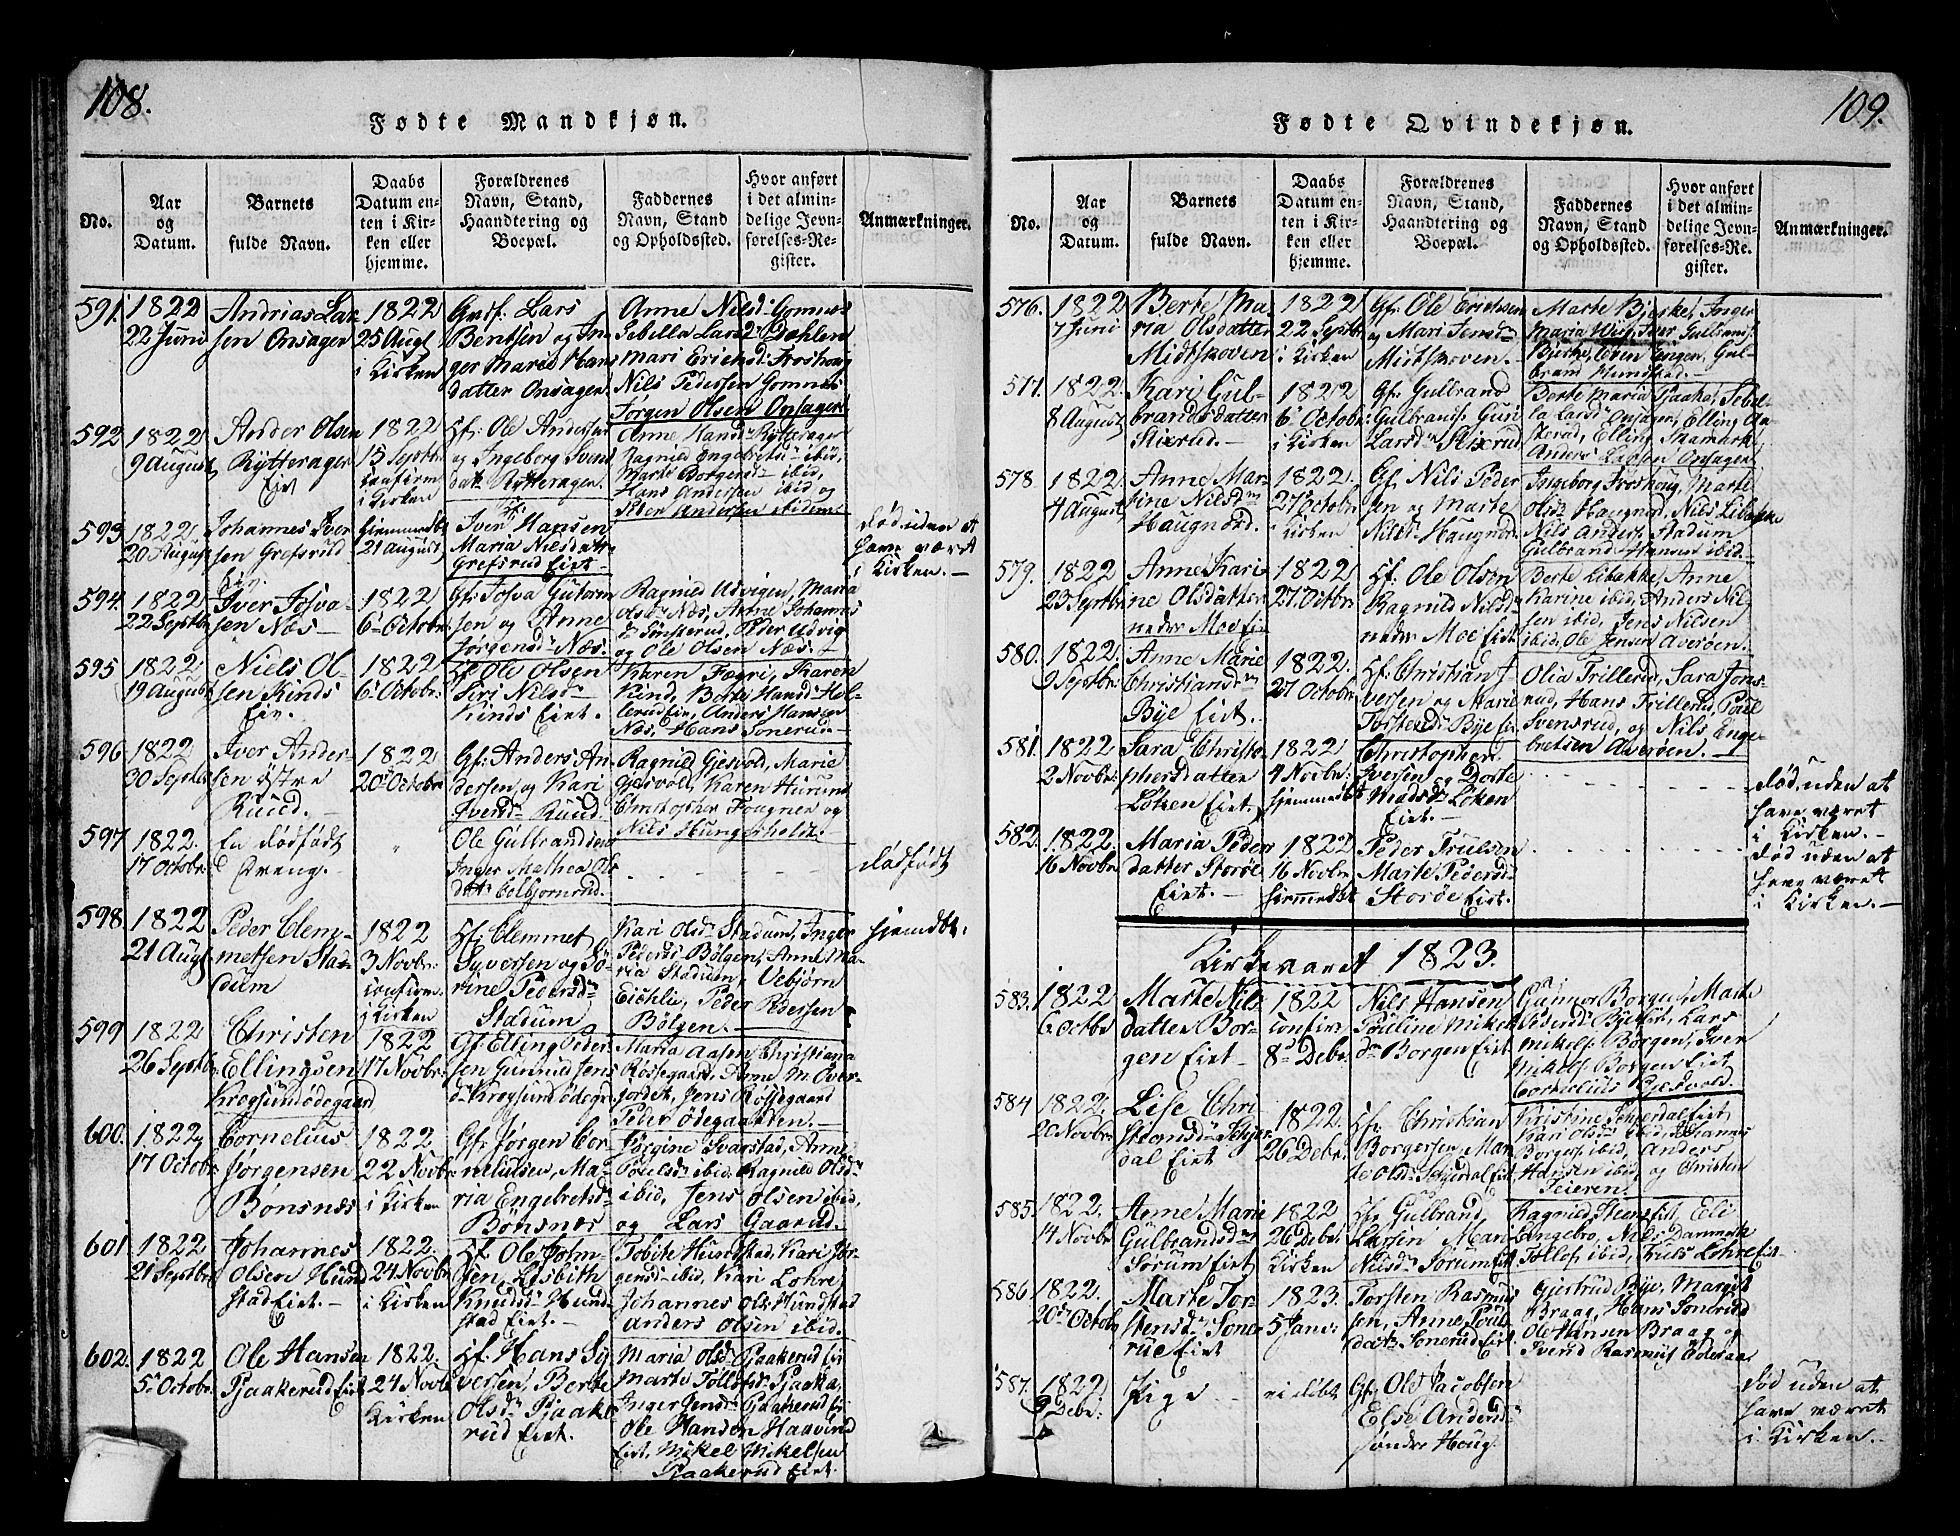 108.
Fødte Mandkjøn.
No.
Aar
og
Datum.
Barnets
fulde Navn.
Daabs
Datum en-
ten i Kir-
ken eller
hjemme.
Forældrenes
Navn, Stand,
Haandtering og
Boepæl.
Faddernes
Navn, Stand
og Opholdssted.
Hvor anført
i det almin-
delige Jevn-
førelses-Re-
gister.
Anmærkninger.
591.
1822
22 Juni
Andrias Lar-
sen Onsager
1822
25 Augt
i Kirken
Gaf. Lars
Bentsen og In-
ger Marie Hans
datter Onsager.
Anne Nilsd: Gomnes
Sebilla Larsdr Dæhlen
Mari Ericksd: Froshoug
Nils Pedersen Gomnes
Jørgen Olsen Onsager
592
1822
9 August
Ander Olsen
Rytterager
Eiv
1822
15 Septbr.
confirm.
i Kirken
Hf: Ole Andersen
og Ingeborg Svens
datr Rytteragen.
Anne Hansdr Rytterager
Ragnild Engebretsdr ibid,
Marte Borgersdr ibid,
Hans Andersen ibid og
Peder Andersen ibidem.
593
1822
20 August
Johannes Iver-
sen Grefsrud
Eiv.
hjemmedbt
21 August
Hf:
Iver Hansen
Maria Nilsdatt
Grefsrud Eiet.
død uden at
have været
i Kirken.
594.
1822
22 Septbr
Iver Josva-
sen Næs
1822
6te Octobr.
Gf. Josva Gutorm
sen og Anne
Jørgensdr Næs.
Ragnild Udvigen, Maria
Olsdr Næs, Anne Johannes
dr Tmsterud, Peder Udvig
og Ole Olsen Næs.
595
1822
19 August
Niels Ol-
sen Kinds
Eiv.
1822
6te Octobr.
Hf. Ole Olsen
Siri Nilsdr
Kinds Eiet.
Karen Fægri, Karen
Kind, Berte Hansdr Hol-
lerud Eiv, Anders Hansen
Næs, Hans Sonerud.
596
1822
30 Septbr
Iver Ander-
sen østre
Ruud.
1822
20de Octobr
Gf: Anders An-
dersen og Kari
Iversdr Ruud.
Ragnild Gjesvold, Marie
Gjesvold, Karen Hurum
Christopher Fragner og
Nils Hungerholdt.
597
1822.
17 Octobr.
En dødfødt
Dreng.
Ole Gulbrandsen
Inger Mathea Ols
datr Eelbjørnrud.
dødfødt
598.
1822
21 Augt
Peder Clem-
metsen Sta-
dum
1822
3 Novbr.
confirm.
i Kirken
Hf: Clemmet
Syversen og Sø-
rine Pedersdr
Stadum
Kari Olsdr Stadum, Inger
Pedersd Bølgen, Anne Ma-
ria Stadum, Vebjørn
Eichlie, Peder Pedersen
Bølgen.
hjemdbt.
599
1822
26 Septbr
Christen
Ellingsen
Krogsundødegaard
1822
17 Novbr.
Gf: Elling Peder-
sen Gunnild Jens
dr Krogsund ødegd
Maria Aasen, Christiana
Røssegaard, Anne M. Over-
jordet, Jens Røssegaard
Peder Ødegaarden.
600.
1822
17 Octobr.
Cornelius
Jørgensen
Bønsnæs
1822
22 Novbr.
i Kirken
Gf: Jørgen Cor-
neliusen, Ma-
ria Engebretsdr
Bønsnæs
Jørgine Svarstad, Anne
Poulsdr ibid. Ragnild Olsdr
ibid, Jens Olsen ibid,
og Lars Gaarud.
601.
1822
21 Septbr.
Johannes
Olsen Hund
stad Eiet.
1822.
24 Novbr.
i Kirken
Hf. Ole John-
sen, Lisbeth
Knudsdr Hund-
stad Eiet.
Tobite Hundstad, Kari Jør-
gensdr ibid, Kari Lohre,
Johannes Olsr Hundstad
Anders Olsen ibid.
602.
1822
5te Octobr.
Ole Hansen
Pjaakerud Eiet
1822.
24 Novbr
Kirken
Hf: Hans Sy-
versen, Berte
Olsdr Pjaake-
rud Eiet.
Maria Olsdr Pjaakerud Eie
Marte Tollofsdr Pjaaka,
Inger Jensdr Pjaakerud Ei
Ole Hansen Haavind
Eiet, Mikel Mikelsen
Pjaakerud Eiet.
109.
Fødte Qvindekjøn.
No.
Aar
og
Datum.
Barnets
fulde Navn.
Daabs
Datum en-
ten i Kir-
ken eller
hjemme.
Forældrenes
Navn, Stand,
Haandtering og
Boepæl.
Faddernes
Navn, Stand
og Opholdssted.
Hvor anført
i det almin-
delige Jevn-
førelses-Re-
gister.
Anmærkninger.
576.
1822
7 Juni
Berte Ma-
ria Olsdatter
Midtskoven
1822
22 Septbr
i Kirken
Gf: Ole Ericksen
og Mari Jensdr
Midtskoven.
Marte Bjerke, Inger
Maria Wiig, Iver Gulbransr
Bjerke, Even Engen, Gul-
brand Hundstad.
577.
1822.
8 August
Kari Gul-
brandsdatter
Stixrud.
1822
6te Octobr
i Kirken
Gf: Gulbrand
Gulbransr Guri
Larsdr Stixrud
Berte Maria Pjaaka, Sebil-
la Larsdr Onsagen, Elling Aa-
sterud, Elling Saamark
Anders Larsen Onsagen
578.
1822.
4 August
Anne Mar-
tine Nilsdr
Haugnord.
1822.
27 Octobr
i Kirken
Gf. Nils Peder
sen og Marte
Nilsdr Haugnor.
Ingeborg Froshoug, Marte
Olsdr Haugnord, Nils Libakke
Nils Anders. Stadum
Gulbrand Hansen ibid.
579.
1822
23 Septbr
Anne Kari-
ne Olsdatter
nedre Moe Eie
1822
27 Octbr.
Hf. Ole Olsen
Ragnild Nilsdr
nedre Moe Eiet.
Berte Libakke, Anne
Karine ibid, Anders Nil-
sen ibid, Jens Nilsen
ibid, Ole Jensen Averøen.
580.
1822.
9 Septbr.
Anne Marie
Christiansdr
Bye Eiet.
1822.
27 Octobr
Hf. Christian I-
versen og Marie
Torstensdr Bye Eie.
Olia Trillerud, Sara Jons-
rud, Hans Trillerud, Paul
Svensrud, og Nils Enge-
bretsen Averøen.
581.
1822
2 Novbr.
Sara Christo-
phersdatter
Løken Eiet.
1822
4 Novbr.
hjemmedbt
Christopher
Iversen og Dorte
Madsdr Løken
Eiet.
død, uden at
have været
i Kirken.
582.
1822.
16 Novbr
Maria Peders
datter Storøe
Eiet.
1822
16 Novbr.
hjemmedbt
Peder Trulsen
Marte Pedersdr
Storøe Eiet.
død uden at
have været
i Kirken.
Kirkeaaret 1823.
583.
1822
6 Octbr
Marte Nils
datter Bor-
gen Eiet
1822
confir.
8de Debr.
Nils Hansen
Pouline Mikels
dr Borgen Eiet
Gunnor Borgen, Marte
Pedersdr Bye Eiet, Lars
Mikelsr Borgen, Iver
Mikelsr Borgen Eiet
Cornelius Gjesvold.
584
1822.
20 Novbr.
Lise Chri-
stiansdr Schjer
dal Eiet
1822.
26 Debr.
Hf. Christian
Borgersen Mar-
te Olsdr Schjerdal Eiet
Kristine Schjerdal Eiet
Kari Olsdr ibid, Hannes
Borgersr ibid, Anders
Hansen ibid, og Christen
Teieren.
585.
1822.
14 Novbr
Anne Marie
Gulbrandsdr
Sørum Eiet
1822
26 Debr.
Kirken
Hf: Gulbrand
Larsen Mari
Nilsdr Sørum Eiet
Ragnild Steens Eiet, Eli
Engebro, Nils Danmark
Tollefsr ibid, Truls Lohre Eiet
586
1822.
20de Octobr
Marte Tor-
stensdr Sone-
rud Eiet
1823.
5 Janv:
Torsten Rasmus
sen, Anne Pouls
datr Sonerud Eiet
Gjertrud Bye, Margit
Braag, Hans Sonerud
Ole Hansen Braag og
Svend Rasmusr Ederaa
587.
1822
9 Debr:
Pige
ei døbt
Gf: Ole Jacobsen
Else Andersdr
søndre Houg.
død uden at
have været
i Kirken.